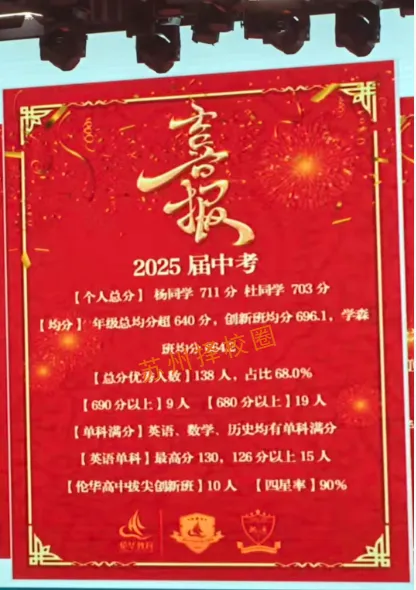 喜报
2025届中考
【个人总分】 杨同学 711分 杜同学 703分
【均分】 年级总均分超640分，创新班均分696.1，学森
班均分
苏州择校圈
【总分优秀人数】138人，占比68.0%
【690分以上】9人 【680分以上】19人
【单科满分】英语、数学、历史均有单科满分
【英语单科】最高分130，126分以上15人
【伦华高中拔尖创新班】10人 【四星率】90%
伦华教育